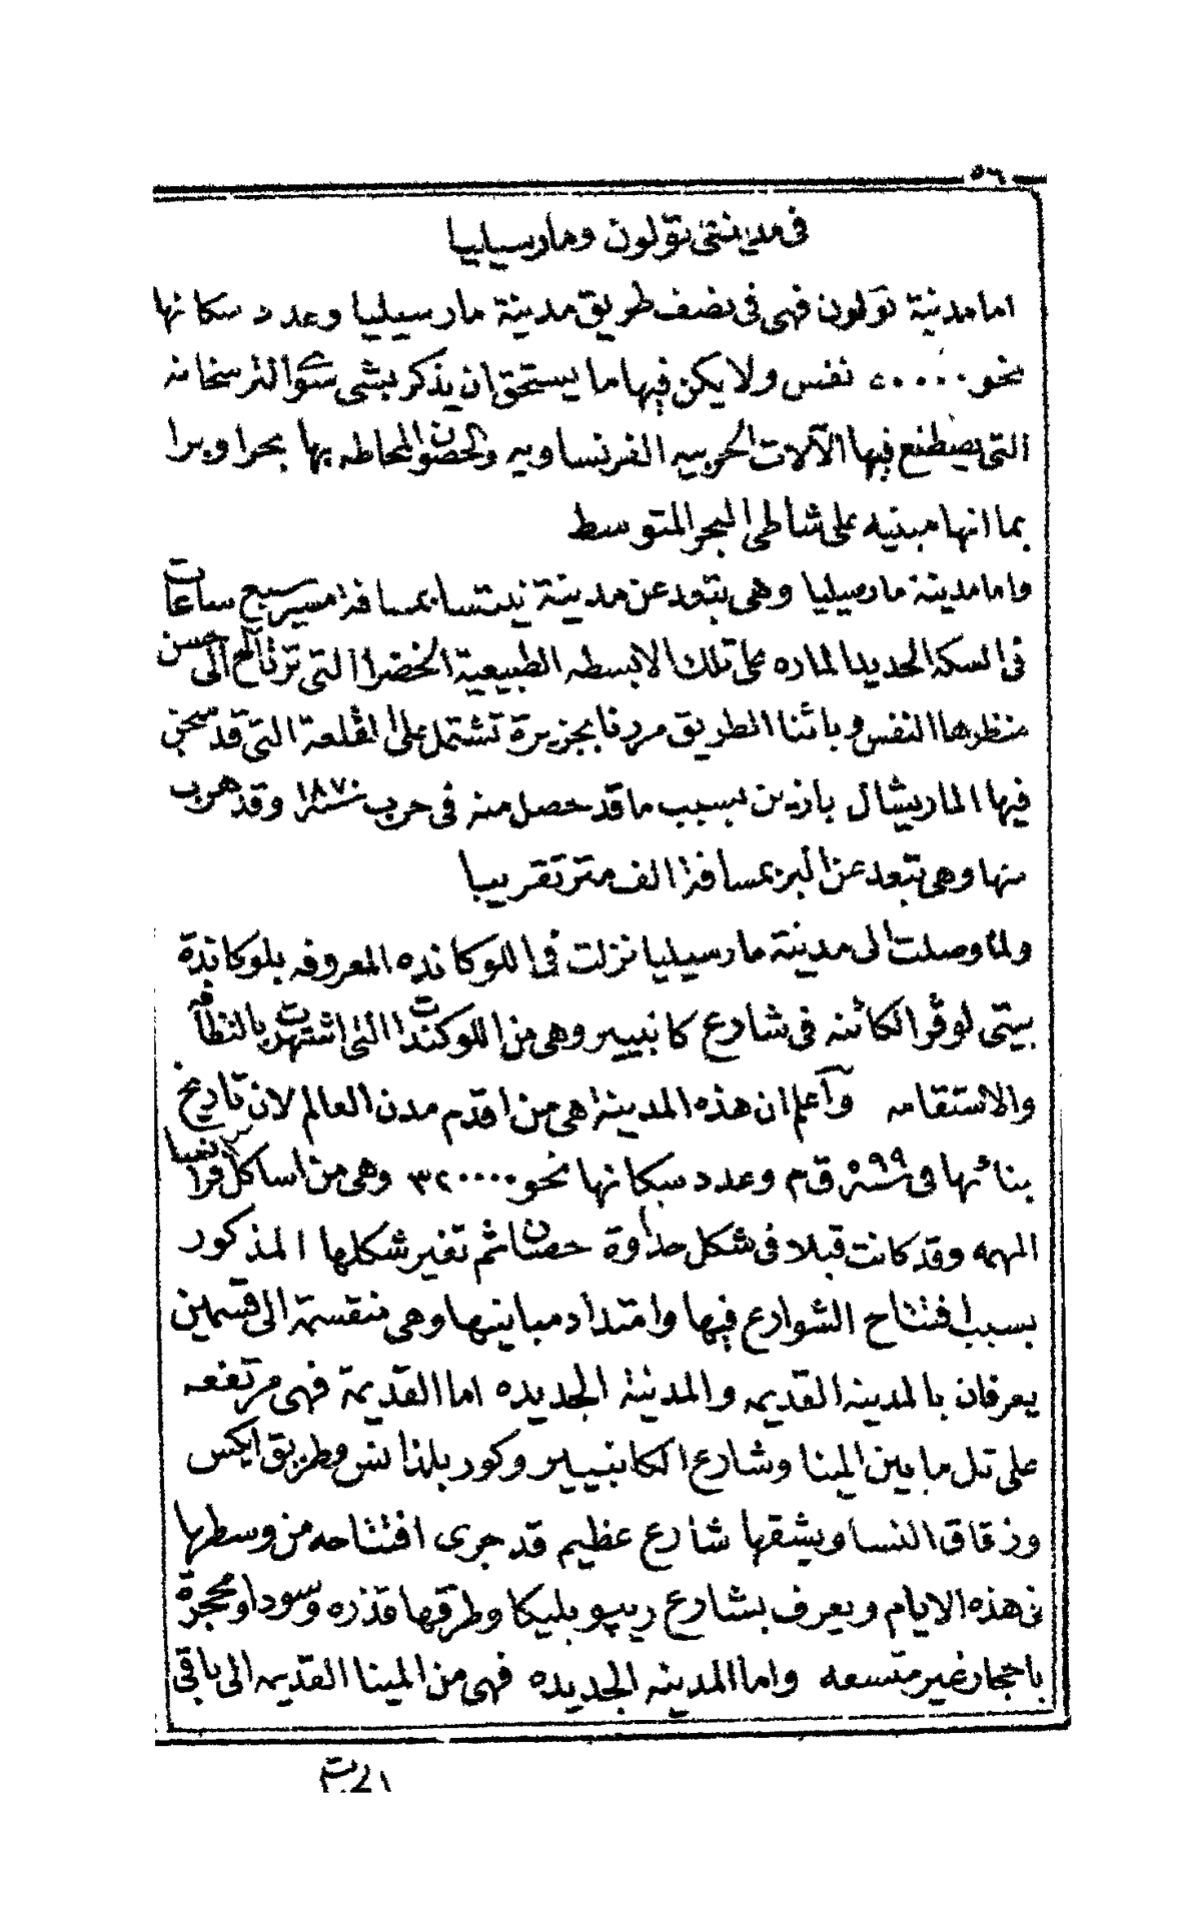 ٥٦
في مدينتي تولون ومارسيليا
اما مدينة تولون فهي في نصف طريق مدينة مارسيليا وعدد سكانها
نحو ٤٠٠٠٠ نفس ولا يكن فيها ما يستحق ان يذكر بشي سوا الترسخانه
التي يصطنع فيها الآلات الحربيه الفرنساويه والحصون المحاطه بها بحرا وبرا
بما انها مبنيه على شاطي البحر المتوسط
واما مدينة مارسيليا وهي تبعد عن مدينة نيتسا بمسافة مسير سبع ساعات
في السكة الحديد الماره على تلك الابسطه الطبيعية الخضرا التي ترتاح الى حسن
منظرها النفس وباثنا الطريق مررنا بجزيرة تشتمل على القلعة التي قد سجن
فيها الماريشال بازين بسبب ما قد حصل منه في حرب سنة ١٨٧٠ وقد هرب
منها وهي تبعد عن البر بمسافة الف متر تقريبا
ولما وصلت الى مدينة مارسيليا نزلت في اللوكانده المعروفه بلوكاندة
بيتي لوڤر الكائنه في شارع كانبيير وهي من اللوكندات التي اشتهرت بالنظافه
والاستقامه وآعلم ان هذه المدينة هي من اقدم مدن العالم لان تاريخ
بنائها في سنة ٥٩٩ ق م وعدد سكانها نحو ٣٢٠٠٠٠ وهي من اساكل فرانسا
المهمه وقد كانت قبلا في شكل حداوة حصان ثم تغير شكلها المذكور
بسبب افتتاح الشوارع فيها وامتداد مبانيها وهي منقسمة الى قسمين
يعرفان بالمدينه القديمه والمدينة الجديده اما القديمة فهي مرتفعه
على تل ما بين المينا وشارع الكانبيير وكور بلذانس وطريق ايكس
وزقاق النسا ويشقها شارع عظيم قد جرى افتتاحه من وسطها
في هذه الايام ويعرف بشارع ريپوبليكا وطرقها قذره وسودا ومحجرة
باحجار غير متسعه واما المدينه الجديده فهي من المينا القديمه الى باقي